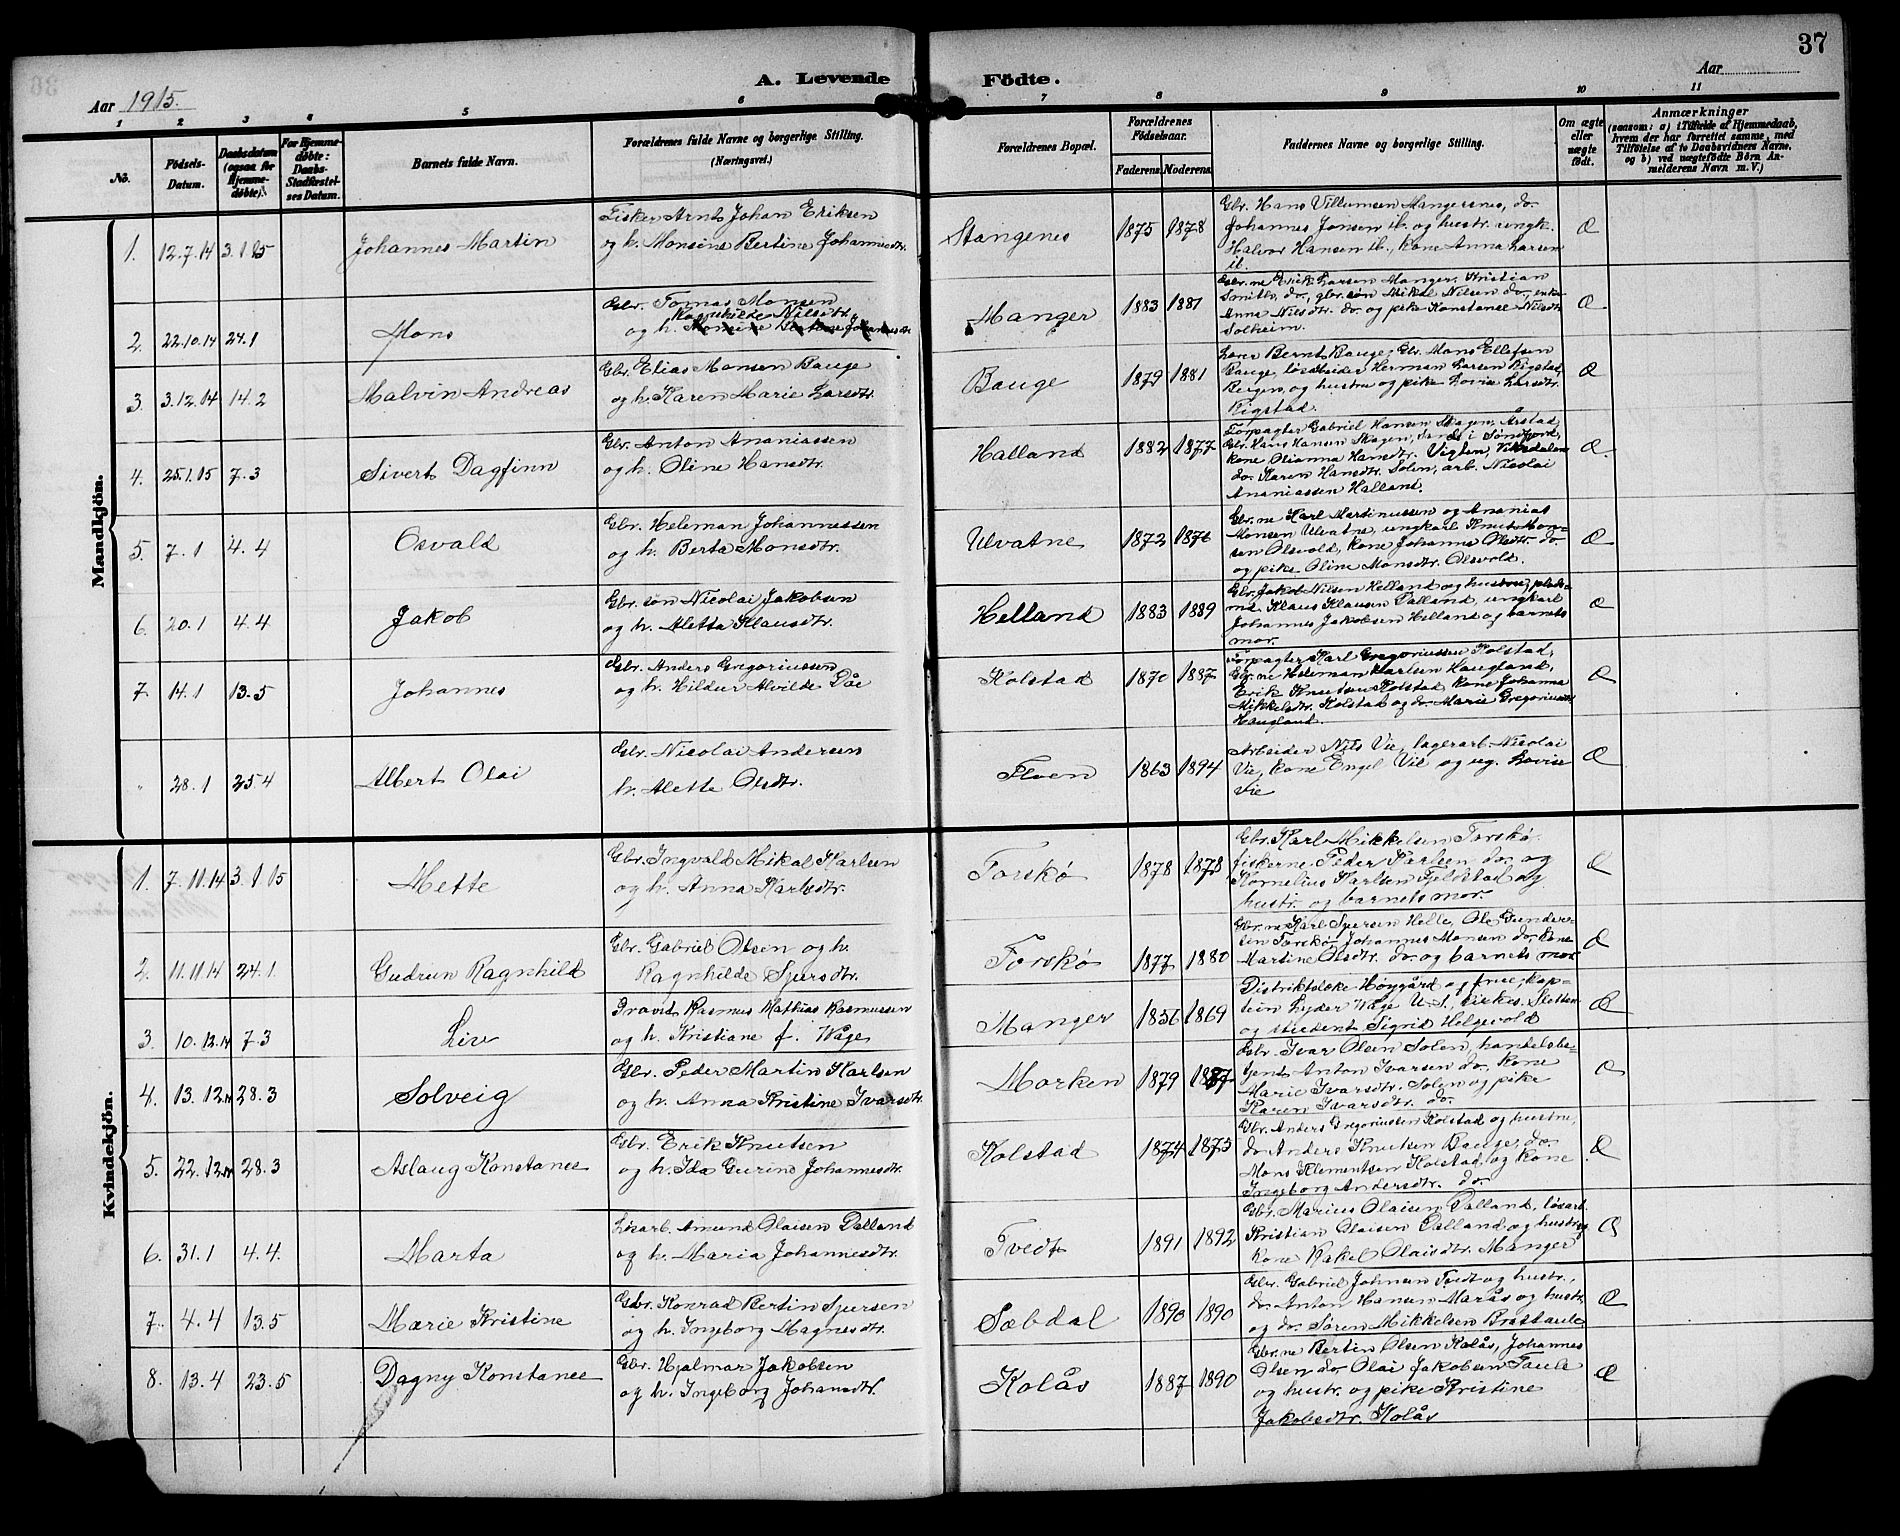 37
A. Levende Födte.
Aar 1915.
Aar
1 2 3 4 5 6 7 8 9 10 11
No.
Födsels-Datum.
Daabsdatum (ogsaa for Hjemmedöbte).
For Hjemmedöbte: Daabs-Stadfæstelses Datum.
Barnets fulde Navn.
Forældrenes fulde Navne og borgerlige Stilling. (Næringsvei.)
Forældrenes Bopæl.
Forældrenes Födselsaar.
Faderens. Moderens.
Faddernes Navne og borgerlige Stilling.
Om ægte eller uægte födt.
Anmærkninger
(saasom: a) i Tilfælde af Hjemmedaab, hvem der har forrettet samme, med Tilföielse af to Daabsvidners Navne, og b) ved uægtefödte Börn Anmelderens Navn m. V.)
Mandkjön.
1. 12.7.14 3.1 15 Johannes Martin
Fisker Arnt Johan Eriksen
og h. Monsine Bertine Johannesdtr.
Stangenes 1875 1878
Gbr. Hans Villumsen Mangersnes, do.
Johannes Jonsen ib. og hustr. ungk.
Halvor Hansen ib., kone Anna Larsen
ib.
Æ
2. 22.10.14 24.1 Mons
Gbr. Tomas Monsen
Ragnhilde Nilsdtr.
og h. Monsine Bertine Johannesdtr
Manger 1883 1881
Gbr.ne Erik Larsen Manger, Kristian
Smith, do., gbr.søn Mikal Nilsen do., enke
Anna Nilsdtr. do. og pike Konstanse Nilsdtr
Solheim.
Æ
3. 3.12.14 14.2 Malvin Andreas
Gbr. Elias Monsen Bauge
og h. Karen Marie Larsdtr.
Bauge 1879 1881
Lærer Bernt Bauge, Gbr. Mons Ellefsen
Bauge, løsarbeider Herman Larsen Rigstad,
Bergen, og hustru og pike Lovise Larsdtr.
Rigstad.
Æ
4. 25.1.15 7.3 Sivert Dagfinn
Gbr. Anton Ananiassen
og h. Oline Hansdtr.
Halland 1882 1877
Forpagter Gabriel Hansen Skagen, Årstad,
Gbr. Hans Hansen Skagen, Sande i Søndfjord,
kone Olianna Hansdtr. Vigten, Viksdalen
do. Karen Hansdtr. Solen, arb. Nicolai
Ananiassen Halland.
Æ.
5. 7.1 4.4 Osvald
Gbr. Heleman Johannessen
og h. Berta Monsdtr.
Ulvatne 1872 1876
Gbr.ne Karl Martinussen og Ananias
Monsen Ulvatne, ungkarl Knut Mon-
sen Olsvold, kone Johanna Olsdtr. do.
og pike Oline Monsdtr. Olsvold.
Æ
6. 20.1 4.4 Jakob
Gbr.søn Nicolai Jakobsen
og h. Aletta Klausdtr.
Helland 1883 1889
Gbr. Jakob Nilsen Helland og hustru, plads-
md. Klaus Klausen Dalland, ungkarl
Johannes Jakobsen Helland og barnets
mor.
Æ
7. 14.1 13.5 Johannes
Gbr. Anders Gregoriussen
og h. Hildur Alvilde Dåe
Kolstad 1870 1887
Forpagter Karl Gregoriussen Kolstad,
Gbr.ne Heleman Karlsen Haugland,
Erik Knutsen Kolstad, kone Johanna
Mikkelsdtr. Kolstad og do. Marie Gregoriusdtr.
Haugland.
Æ
" 28.1 25.4 Albert Olai
Gbr. Nicolai Andersen
h. Alette Olsdtr.
Floen 1863 1894
Arbeider Nils Vie, lagerarb. Nicolai
Vie, kone Engel Vie og ug. Lovise
Vie
Æ
Kvindekjön.
1. 7.11.14 3.1 15 Mette
Gbr. Ingvald Mikal Karlsen
og h. Anna Karlsdtr.
Forskø 1878 1878
Gbr. Karl Mikkelsen Forskø,
fiskerne Peder Karlsen do. og
Kornelius Karlsen Fjeldstad og
hustr. og barnets mor.
Æ
2. 11.11.14 24.1. Gudrun Ragnhild
Gbr. Gabriel Olsen og h.
Ragnhilde Sjursdtr.
Forskø 1877 1880
Gbr.ne Karl Sjursen Helle, Ole Gunder-
sen Forskø, Johannes Monsen do. kone
Martine Olsdtr. do. og barnets mor.
Æ
3. 10.12.14 7.3 Liv
Provst Rasmus Mathias Rasmussen
og h. Kristiane f. Wåge
Manger 1856 1869
Distriktslæke Høygård og frue, kap-
tein Lyder Wåge U.S., Sletten
og student Sigrid Helgevold
Æ
4. 13.12.14 28.3 Solveig
Gbr. Peder Martin Karlsen
og h. Anna Kristine Ivarsdtr.
Marken 1879 1887
Gbr. Ivar Olsen Solen, handelsbe-
tjent Anton Ivarsen do., kone
Marie Ivarsdtr. Solen og pike
Karen Ivarsdtr. do.
Æ
5. 22.12.14 28.3 Aslaug Konstanse
Gbr. Erik Knutsen
og h. Ida Gurine Johannesdtr.
Kolstad 1874 1875
Gbr. Anders Gregoriussen Kolstad og hustru,
do. Anders Knutsen Bauge, do.
Mons Klementsen Kolstad, og kone
Ingeborg Andersdtr. do.
Æ
6. 31.1 4.4. Marta
Løsarb. Amund Olaisen Dalland
og h. Maria Johannesdtr.
Tvedt 1891 1892
Gbr. Marius Olaisen Dalland, løsarb.
Kristian Olaisen Dalland og hustr. og
kone Rakel Olaisdtr. Manger
Æ
7. 4.4 13.5 Marie Kristine
Gbr. Konrad Bertin Sjursen
og h. Ingeborg Magnesdtr.
Sæbdal 1890 1890
Gbr. Gabriel Johnsen Tvedt og hustr.,
do. Anton Hansen Marås og hustr.
og do. Søren Mikkelsen Brøstaule
Æ
8. 13.4 23.5 Dagny Konstanse
Gbr. Hjalmar Jakobsen
og h. Ingeborg Johansdtr.
Kolås 1887 1890
Gbr.ne Bertin Olsen Kolås, Johannes
Olsen do. Olai Jakobsen Taule
og hustr. og pike Kristine
Jakobsdtr. Kolås
Æ